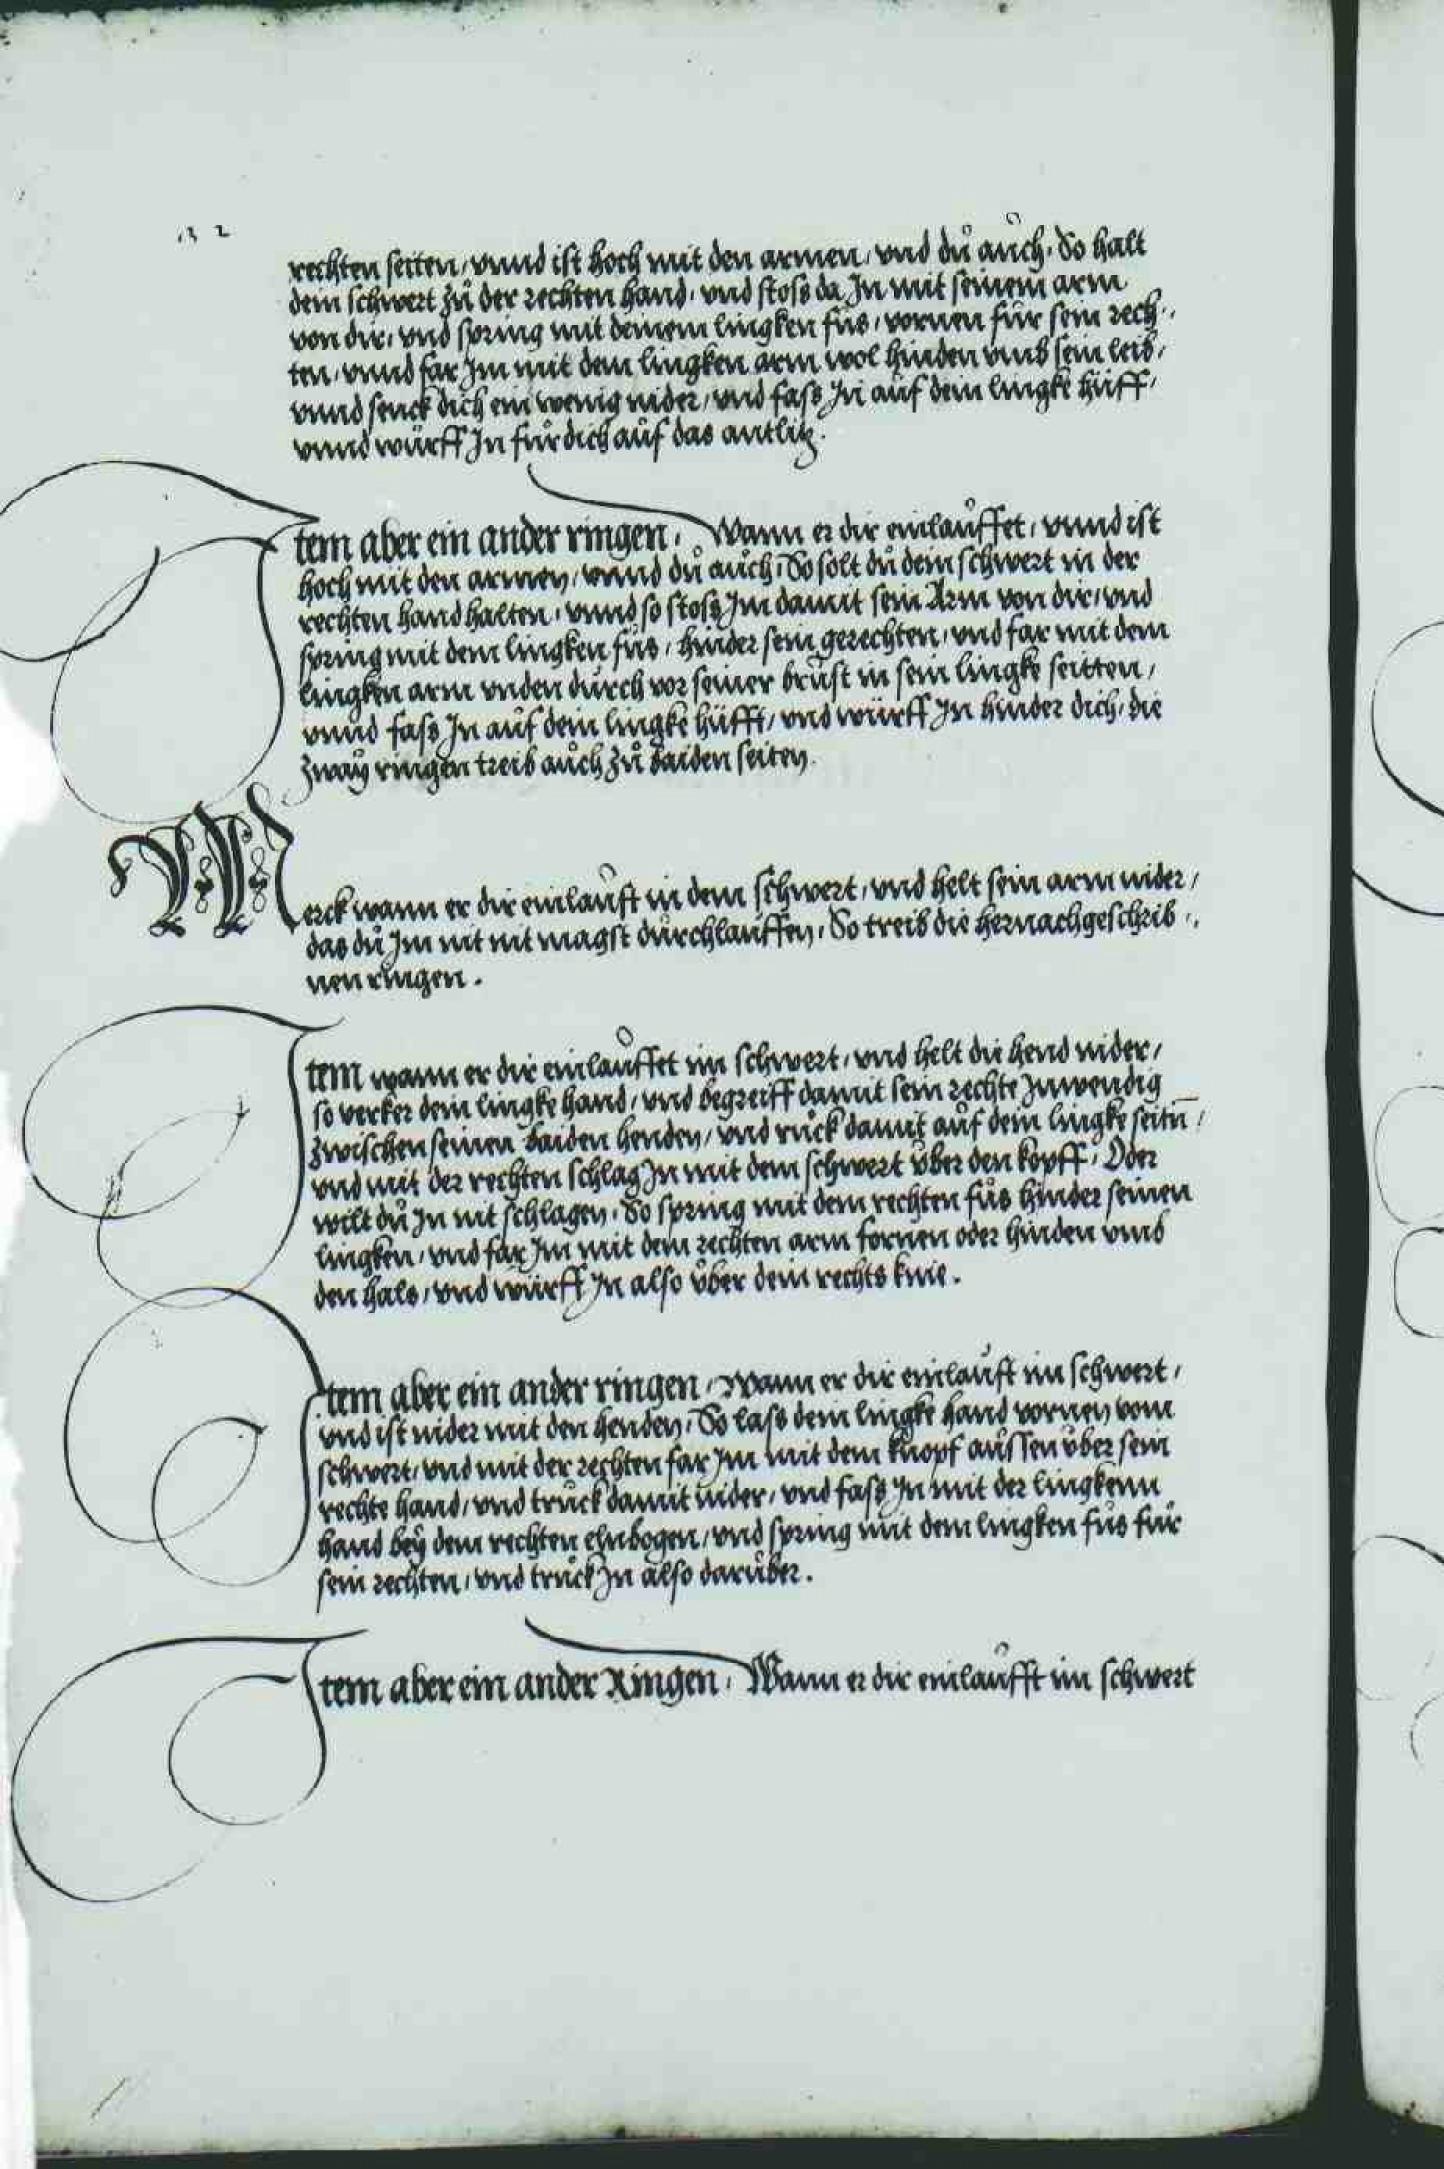 132
rechten seiten, vnnd ist hoch mit den armen, vnd dů aůch, So halt
dein schwert zů der rechten hand, vnd stoss da Jn mit seinem arm
von dir, vnd spring mit deinem lingken fůs, vornen fůr sein rech-
ten, vnnd far Jm mit dem lingken arm wol hinden vmb sein leib,
vnnd senck dich ein wenig nider, vnd fass Jn aůf dein lingke hüff,
vnnd würff Jn fůr dich aůf das antlitz.
Jtem aber ein ander ringen, Wann er dir einlaůffet, vnnd ist
hoch mit den armen, vnnd dů aůch, So solt dů dein schwert in der
rechten hand halten, vnnd so stoss Jm damit sein Arm von dir, vnd
spring mit dem lingken fůs, hinder sein gerechten, vnd far mit dem
lingken arm vnden důrch vor seiner brůst in sein lingke seitten,
vnnd fass Jn aůf dein lingke hüfft, vnd würff Jn hinder dich, die
zwaÿ ringen treib aůch zů baiden seiten.
Merck wann er dir einlaůft in dem schwert, vnd helt sein arm nider,
das dů Jm nit nit magst důrchlaůffen, So treib die hernachgeschrib-
nen ringen.
Jtem wann er dir einlaůffet im schwert, vnd helt die hend nider,
so verker dein lingke hand, vnd begreiff damit sein rechte Jnwendig
zwischen seinen baiden henden, vnd růck damit aůf dein lingke seitn̄,
vnd mit der rechten schlag Jn mit dem schwert ůber den kopff, Oder
wilt dů Jn nit schlagen, So spring mit dem rechten fůs hinder seinen
lingken, vnd far Jm mit dem rechten arm fornen oder hinden vmb
den hals, vnd würff Jn also ůber dein rechts knie.
Jtem aber ein ander ringen, Wann er dir einlaůft im schwert,
vnd ist nider mit den henden, So lass dein lingke hand vornen vom
schwert, vnd mit der rechten far Jm mit dem knopf aůssen ůber sein
rechte hand, vnd trůck damit nider, vnd fass Jn mit der lingkenn
hand beÿ dem rechten elnbogen, vnd spring mit dem lingken fůs fůr
sein rechten, vnd trůck Jn also darůber.
Jtem aber ein ander Ringen, Wann er dir einlaůfft im schwert